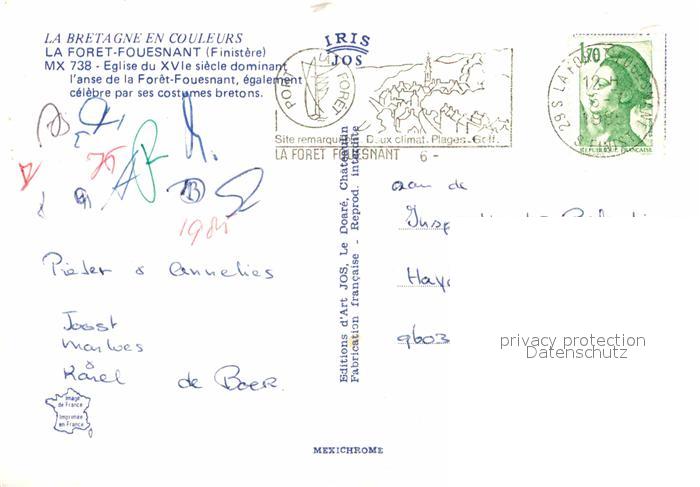 LA BRETAGNE EN COULEURS
LA FORET-FOUESNANT (Finistère)
MX 738 - Eglise du XVIe siècle dominant
l'anse de la Forêt-Fouesnant, également
célèbre par ses costumes bretons.
IRIS
JOS
PORT
FORET
Site remarquable Doux climat. Plages. Golf.
LA FORET FOUESNANT 6 -
1,70
REPUBLIQUE FRANCAISE
29S LA FORET FOUESNANT
1984
Pieter & Annelies
Joost
Marloes
&
Karel de Boer.
aan de
Hay
9603
Editions d'Art JOS, Le Doaré, Chateaulin
Fabrication française - Reprod. interdite
privacy protection
Datenschutz
Image
de France
Imprimée
en France
MEXICHROME